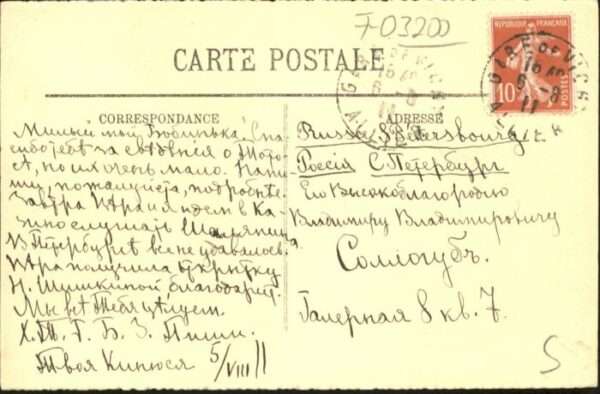 F03200
CARTE POSTALE
REPUBLIQUE FRANÇAISE
10
GARE DE VICHY
CORRESPONDANCE
ADRESSE
Милый мой Бобинька! Спа-
сибо тебѣ за свѣдѣнія о Тото-
сѣ, но их очень мало. Напи-
ши, пожалуйста, подробнѣе.
Завтра Ира и я идем в Ка-
зино слушать Шаляпина
В Петербургѣ все не удавалось.
Ира получила открытку
Н. Шишкиной благодарит.
Мы всѣ Тебя цѣлуем.
Х. Т. Г. Б. З. Пиши.
Твоя Кинюся 5/VIII 11
Russie S. Petersbourg
Россія С. Петербург
Его Высокоблагородію
Владимиру Владимировичу
Соллогубъ.
Галерная 8 кв. 7.
5